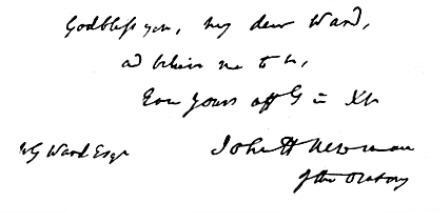 God bless you, my dear Ward,
ad believe me to be,
Ever yours affly in Xt
John H Newman
W G Ward Esqr
of the Oratory